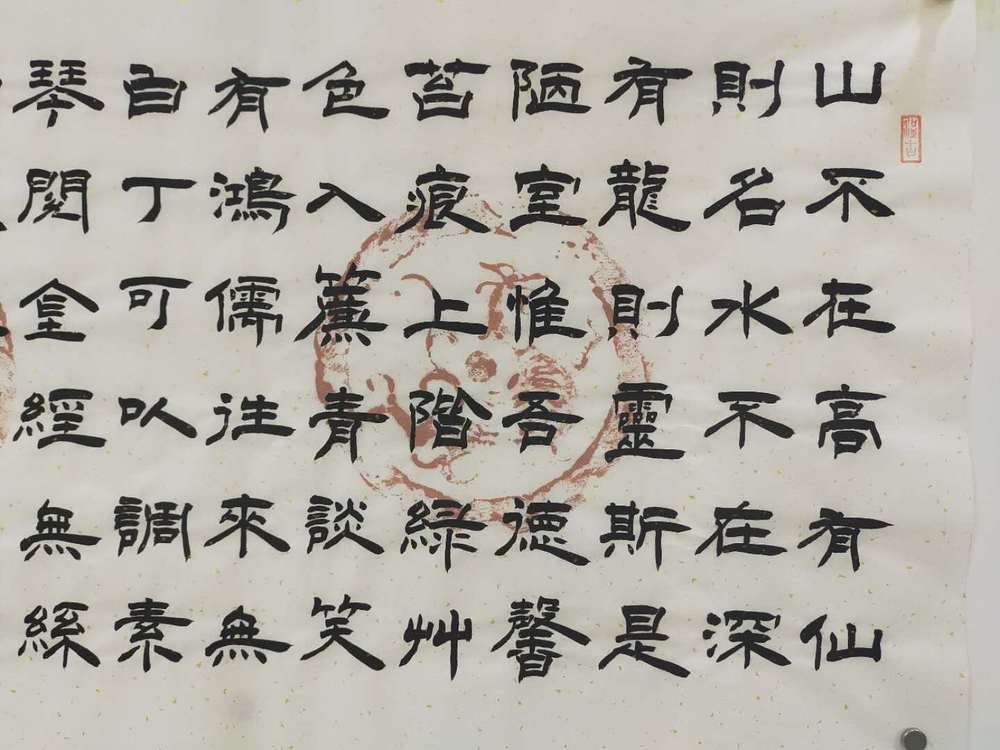 山不在高有仙
則名水不在深
有龍則靈斯是
陋室惟吾德馨
苔痕上階綠艸
色入簾青談笑
有鴻儒往來無
白丁可以調素
琴閱金經無絲